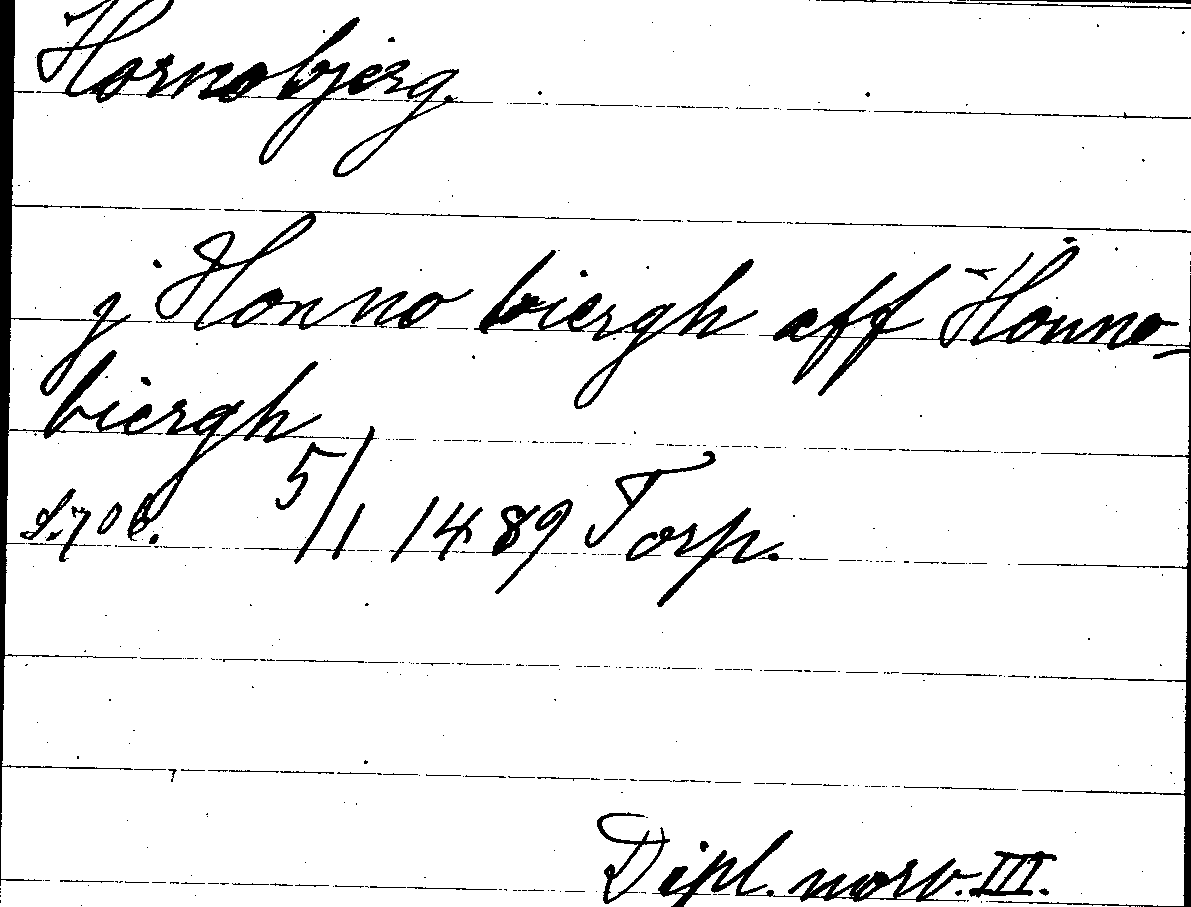 Hornobjerg.
j Honno biergh aff Honno-
biergh
S. 701. 5/1 1489 Torp.
Dipl. norv. III.